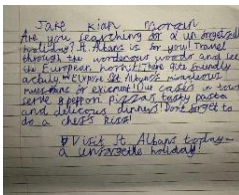 Jake Kian Borain
Are you searching for a un forgettable
holiday? St Albans is for you! Travel
through the wonderous woods and see
the European hornet. Take
Explore St Albans miraculous
museums for Our cafes in town
serve pepperoni pizzas tasty pasta
and delicous dinners! Dont forget to
do a chefs kiss!
Visit St Albans today-
a unforgetta holiday!